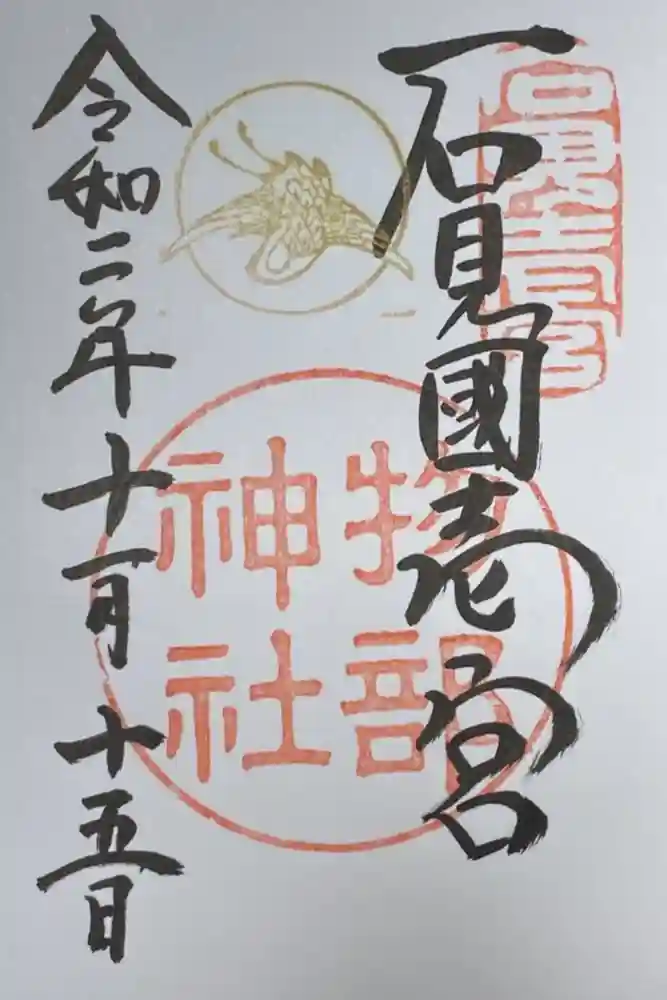 石見國壱宮
物部
神社
令和二年十一月十五日